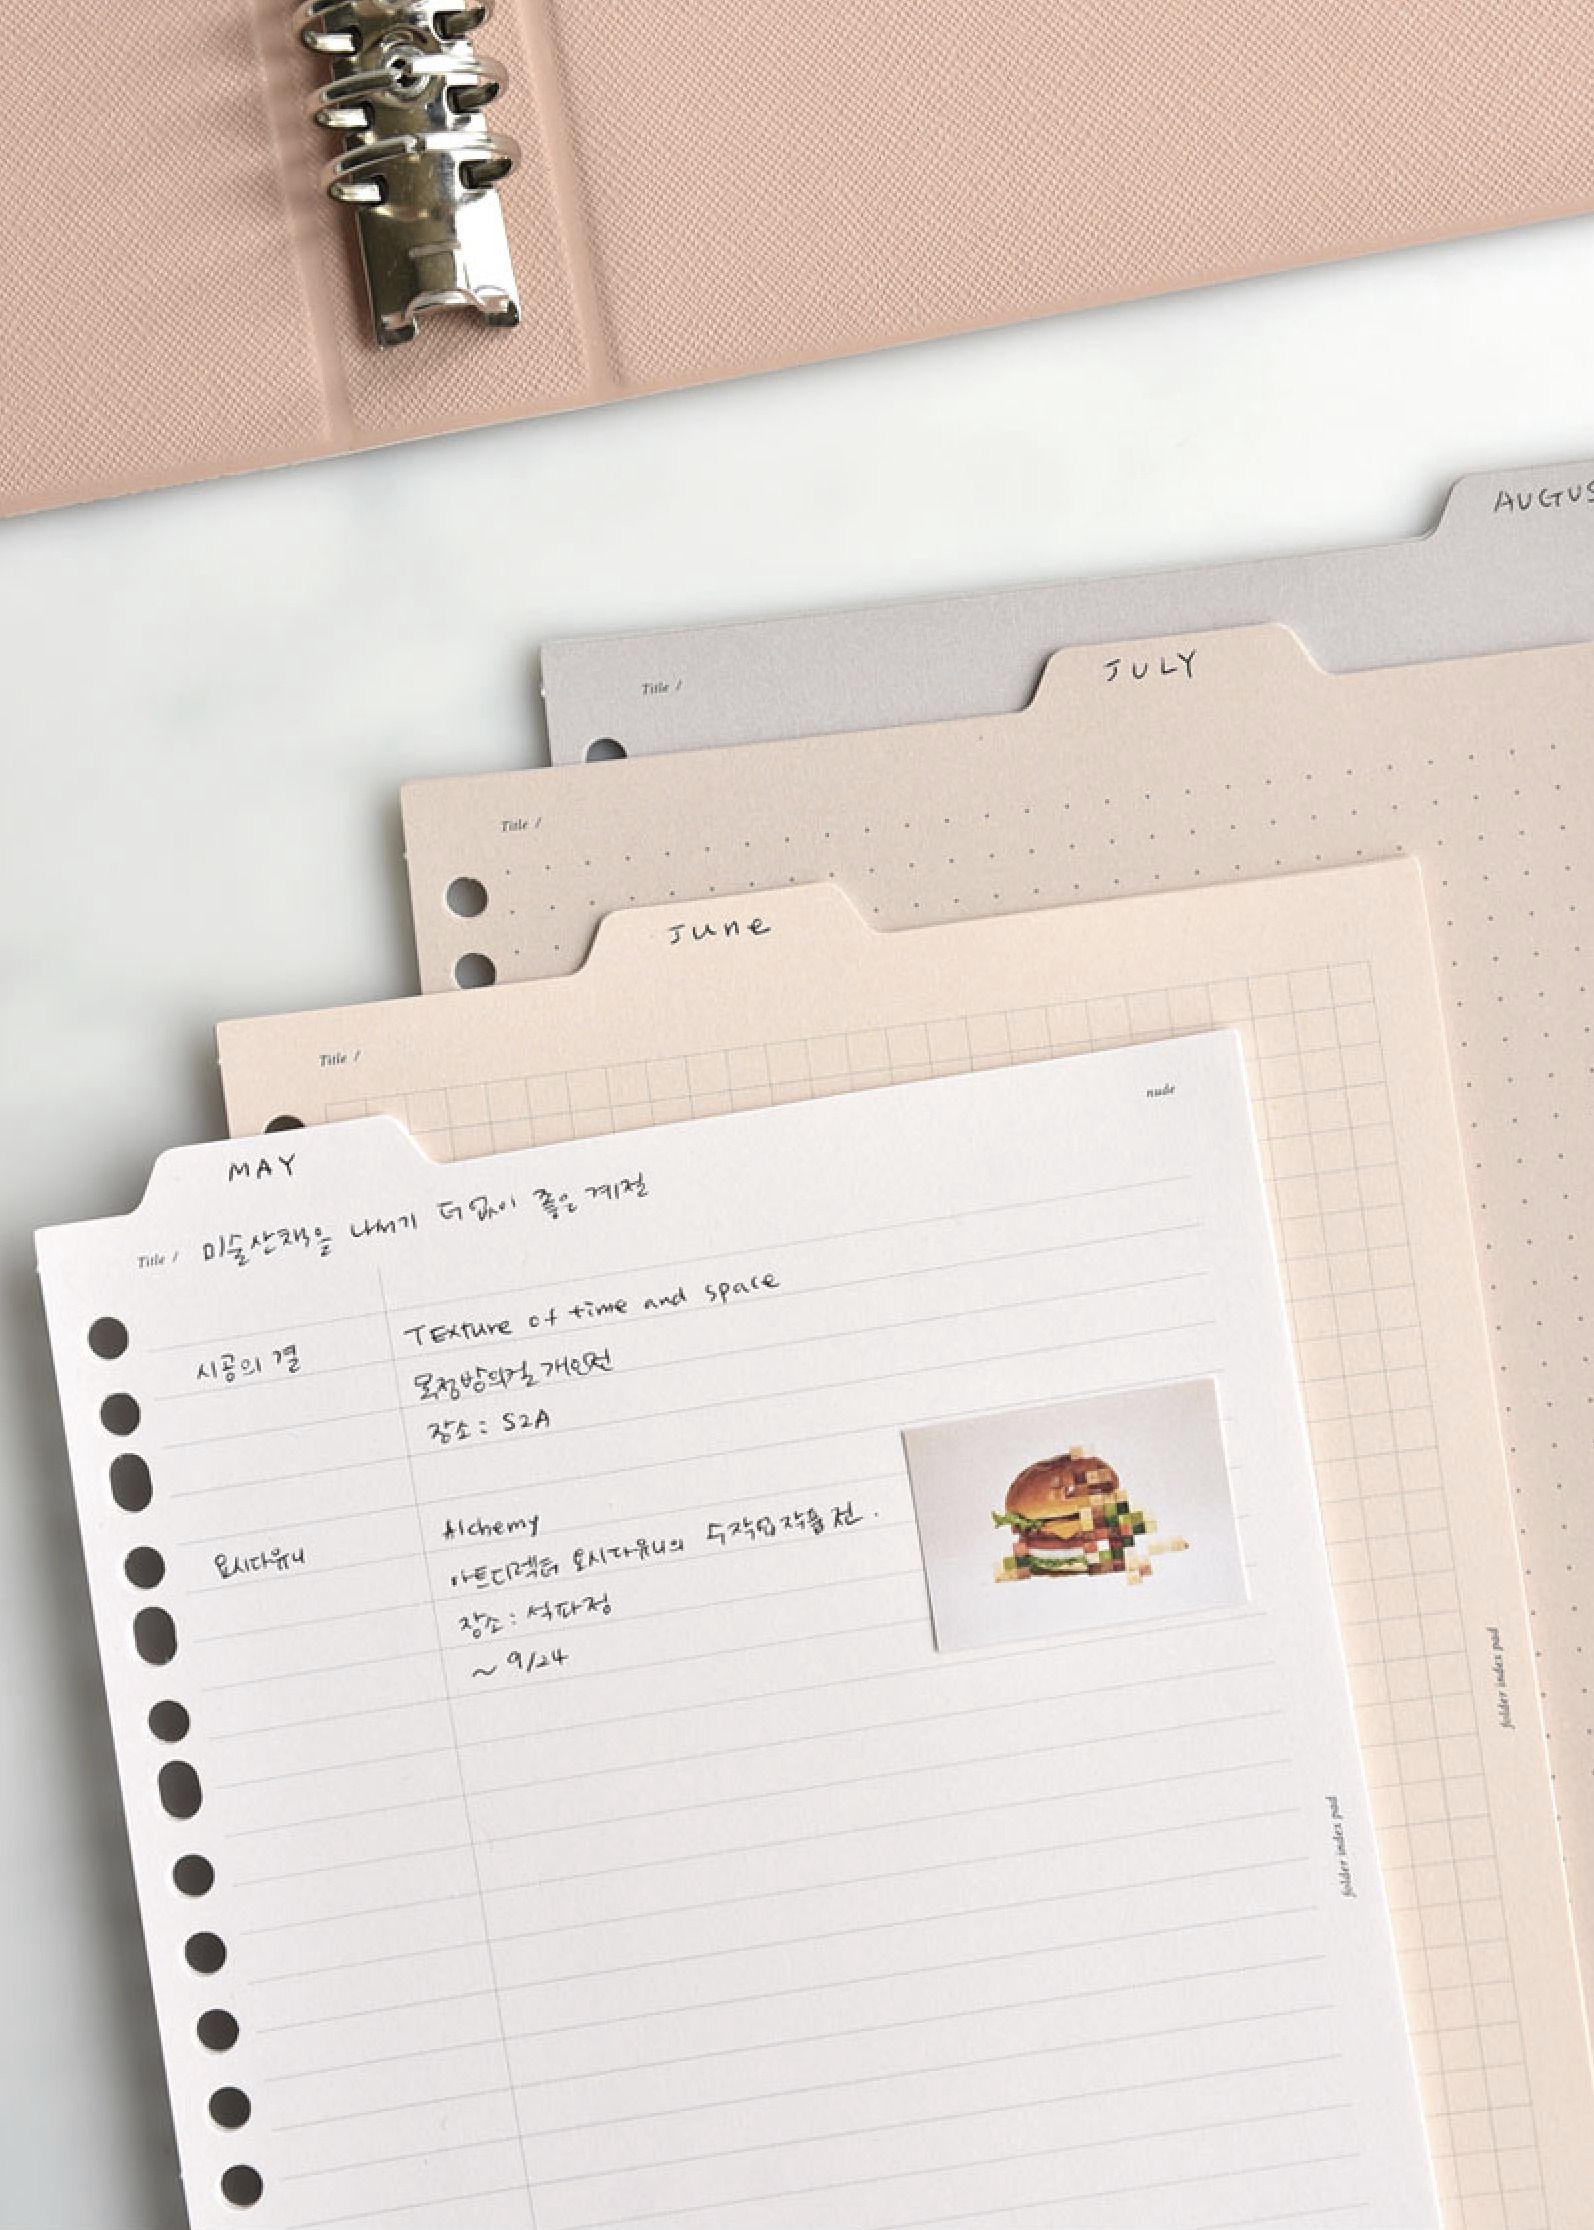 AUGUS
Title /
JULY
Title /
June
Title /
nude
MAY
Title / 미술산책을 나서기 더없이 좋은 계절
시공의 결
TExture of time and space
모정방의걸 개인전
장소 : S2A
요시다유니
Alchemy
아트디렉터 요시다유니의 수작업 작품전.
장소 : 석파정
~ 9/24
folder index pad
folder index pad